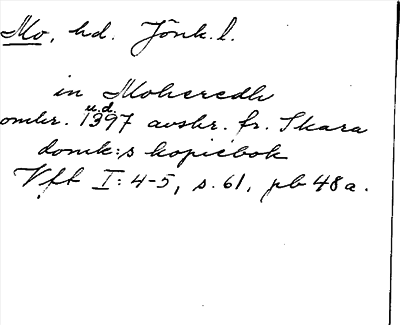 Mo, hd. Jönk. l.
in Moheredh
u.d.
omkr. 1397 avskr. fr. Skara
domk:s kopiebok
Vft I: 4-5, s. 61, pb 48 a.